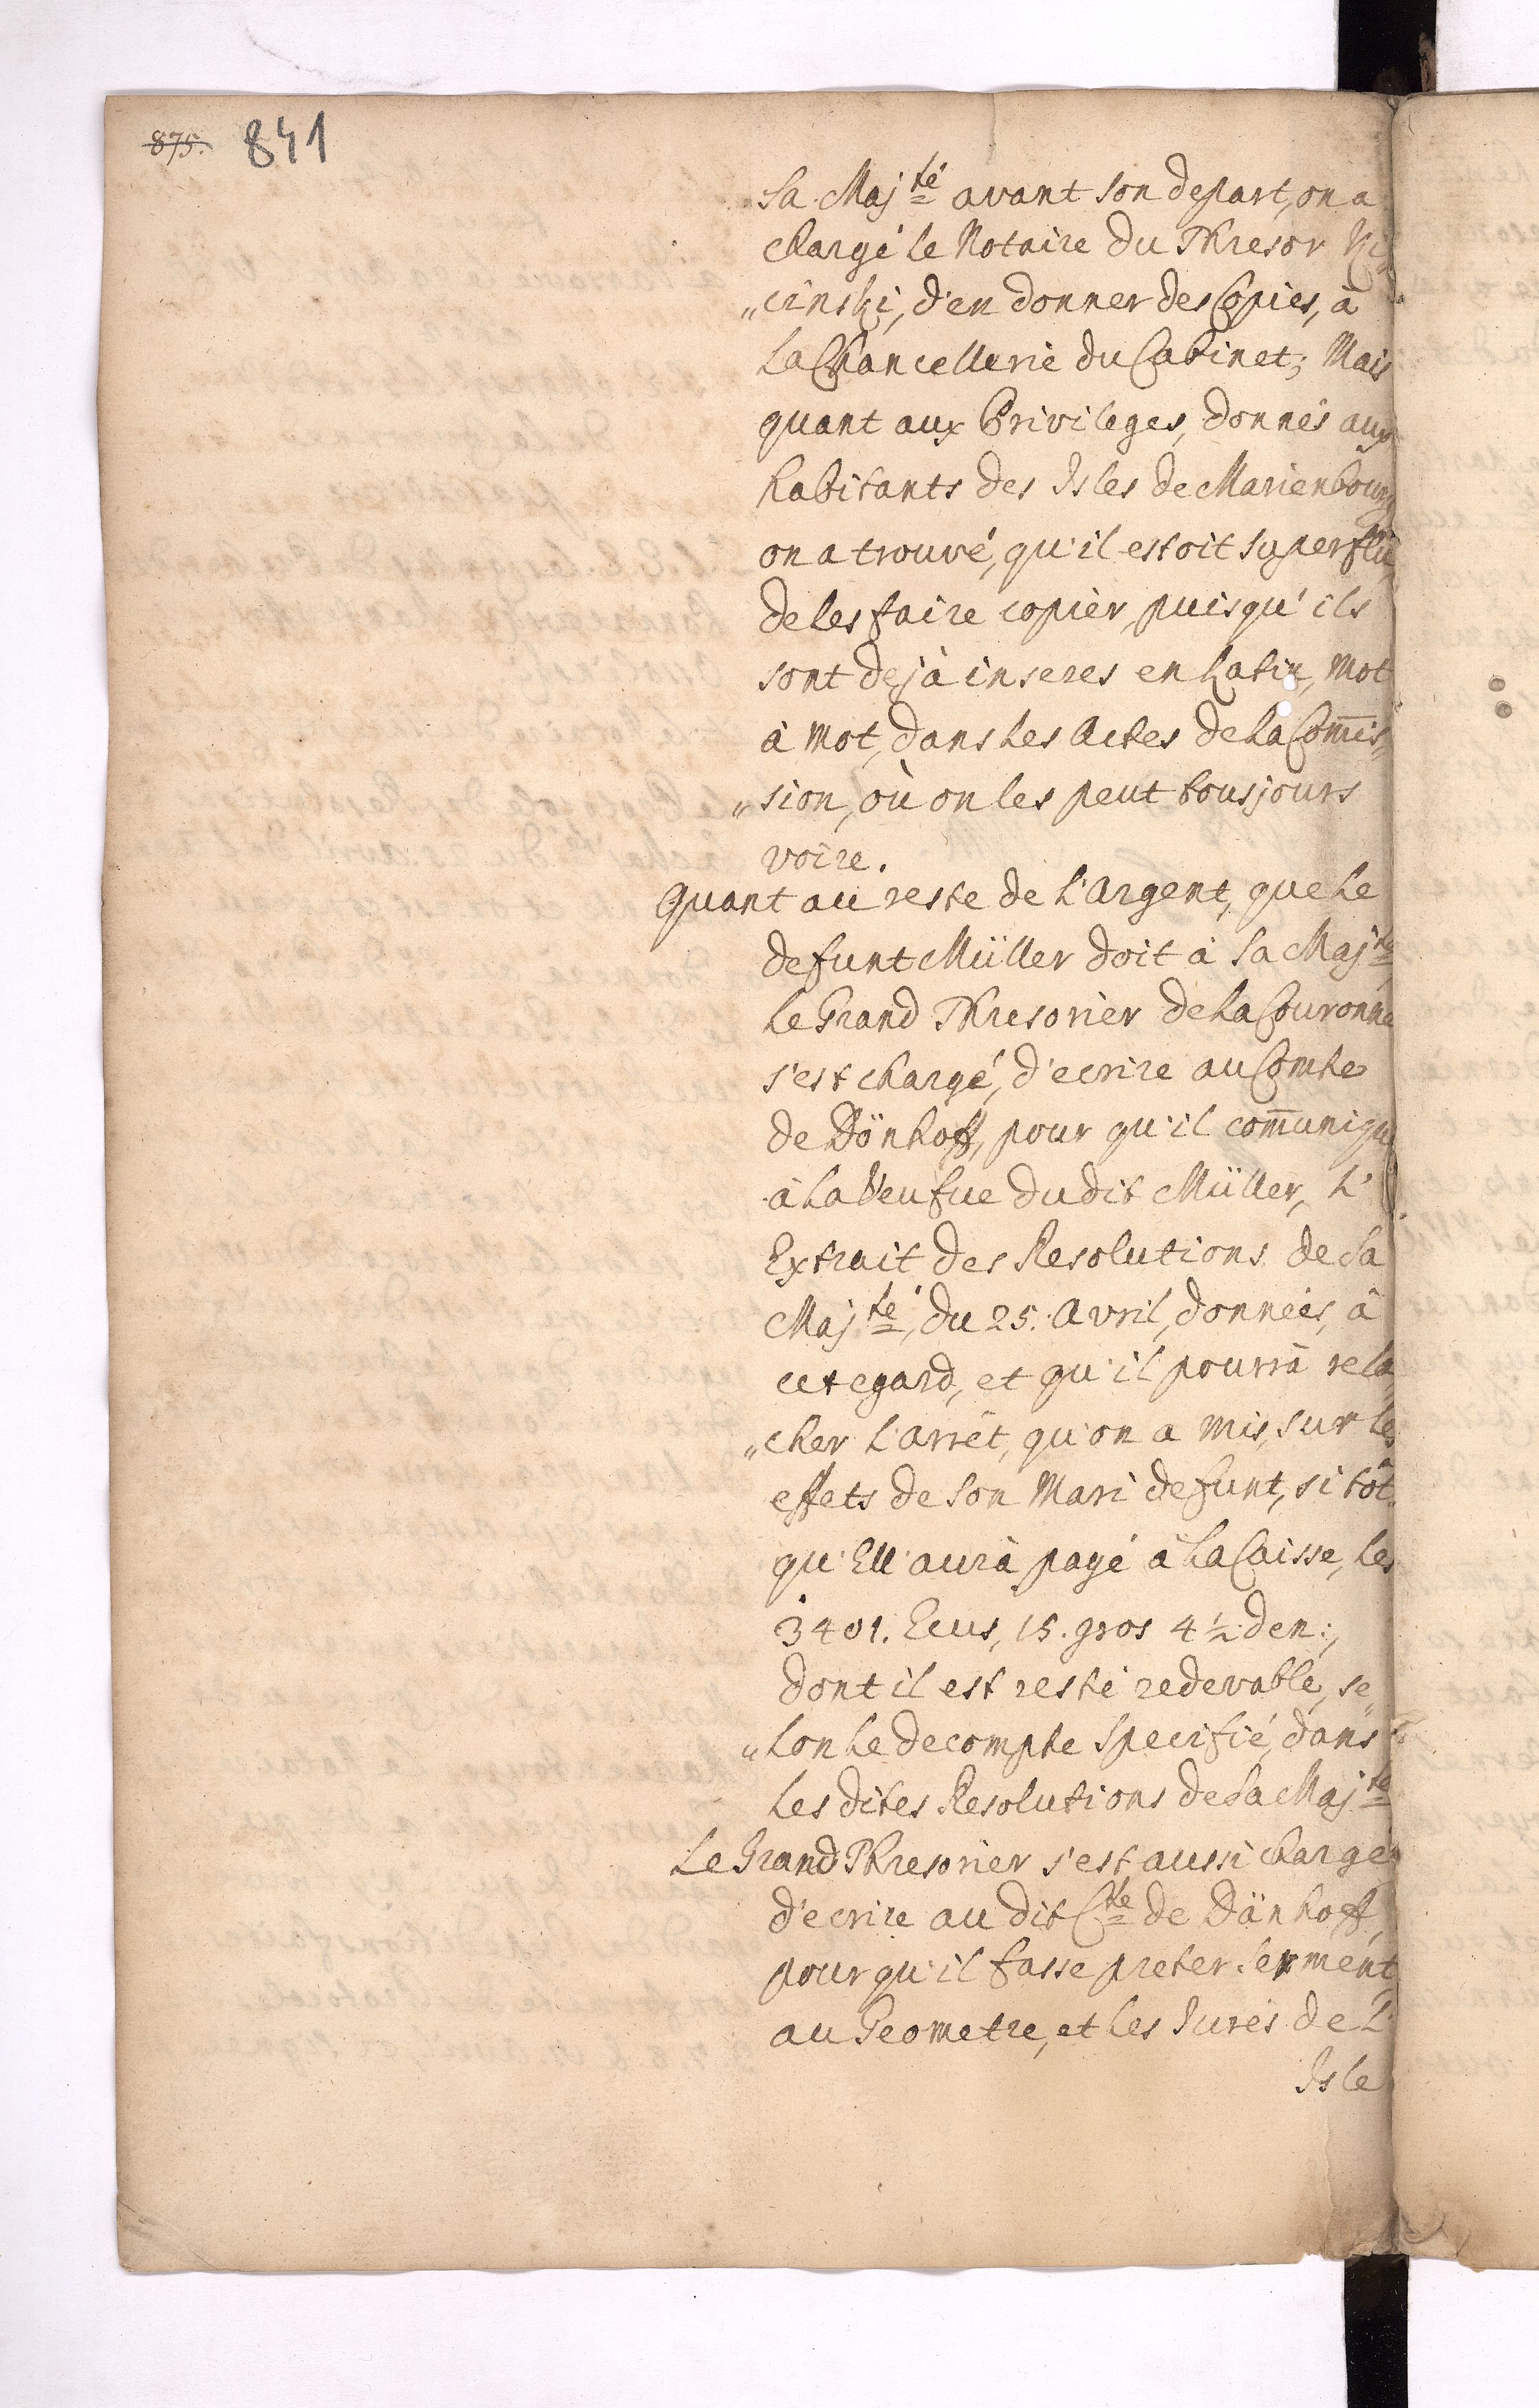 875. 841
Sa Maj.té avant son depart, on a
chargé le Notaire du Thresor
„cinski, d'en donner des Copies, à
La Chancellerie du Cabinet; Mais
quant aux Privileges, donnés aux
habitants des Isles de Marienbourg
on a trouvé, qu'il estoit superflû,
de les faire copier, puisqu'ils
sont dejà inseres en Latin, mot
à mot, dans les Actes de la Com̄is„
„sion, où on les peut tousjours
voire.
Quant au reste de l'Argent, que le
defunt Müller doit à Sa Maj.té
Le Grand Thresorier de la Couronne
s'est chargé, d'ecrire au Comte
de Dönhoff, pour qu'il com̄unique
à la Veufue du dit Müller, l'
Extrait des Resolutions de Sa
Maj.té, du 25. Avril, donnéés, à
cet egard, et qu'il pourrà rela„
„cher l'arrêt, qu'on a mis, sur les
effets de son Mari defunt, si tôt
qu'Ell'aurà payé à la Caisse, les
3401. Ecus, 15. gros 4½ den:,
dont il est resté redevable, se„
„lon le decompte specifié, dans
les dites Resolutions de Sa Maj.té
Le Grand Thresorier s'est aussi chargé,
d'ecrire au dit C.te de Dänhoff,
pour qu'il fasse preter serment
au Geometre, et les Jurés de l'
Isle